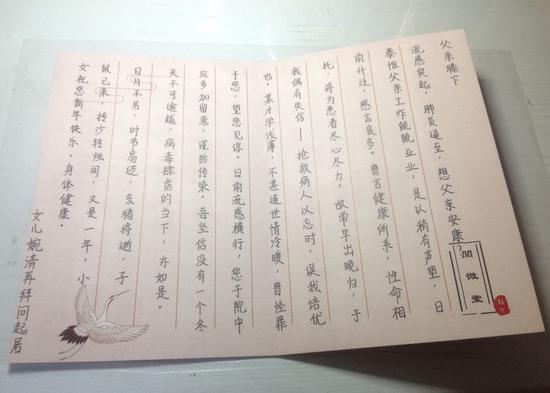 父亲膝下
流感突起，肺炎逼至，想父亲安康？
恭惟父亲工作兢兢业业，是以稍有声望，日
前升迁，感言良多。曾言健康所系，性命相
托，将为患者尽心尽力。故常早出晚归，于
我偶有失信——抢救病人以忘时，误我培优
也，某才学浅薄，不甚通世情冷暖，曾怪罪
于您，望您见谅。日前流感横行，您于院中
应多加留意，谨防传染。吾坚信没有一个冬
天不可逾越，病毒肆虐的当下，亦如是。
日月不居，时节易迈，亥猪将逝，子
鼠已来，转沙转烛间，又是一年，小
女祝您新年快乐，身体健康。
女儿婉清再拜问起居
加微堂